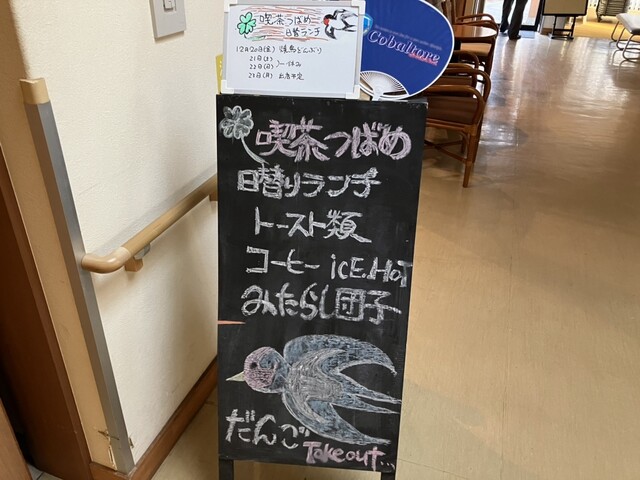 喫茶つばめ
日替ランチ
12月20日(金) 焼鳥どんぶり
21日(土)
22日(日) 休み
23日(月) 出店予定
Cobaltore
喫茶つばめ
日替りランチ
トースト類
コーヒー icE.HoT
みたらし団子
だんご
Takeout...